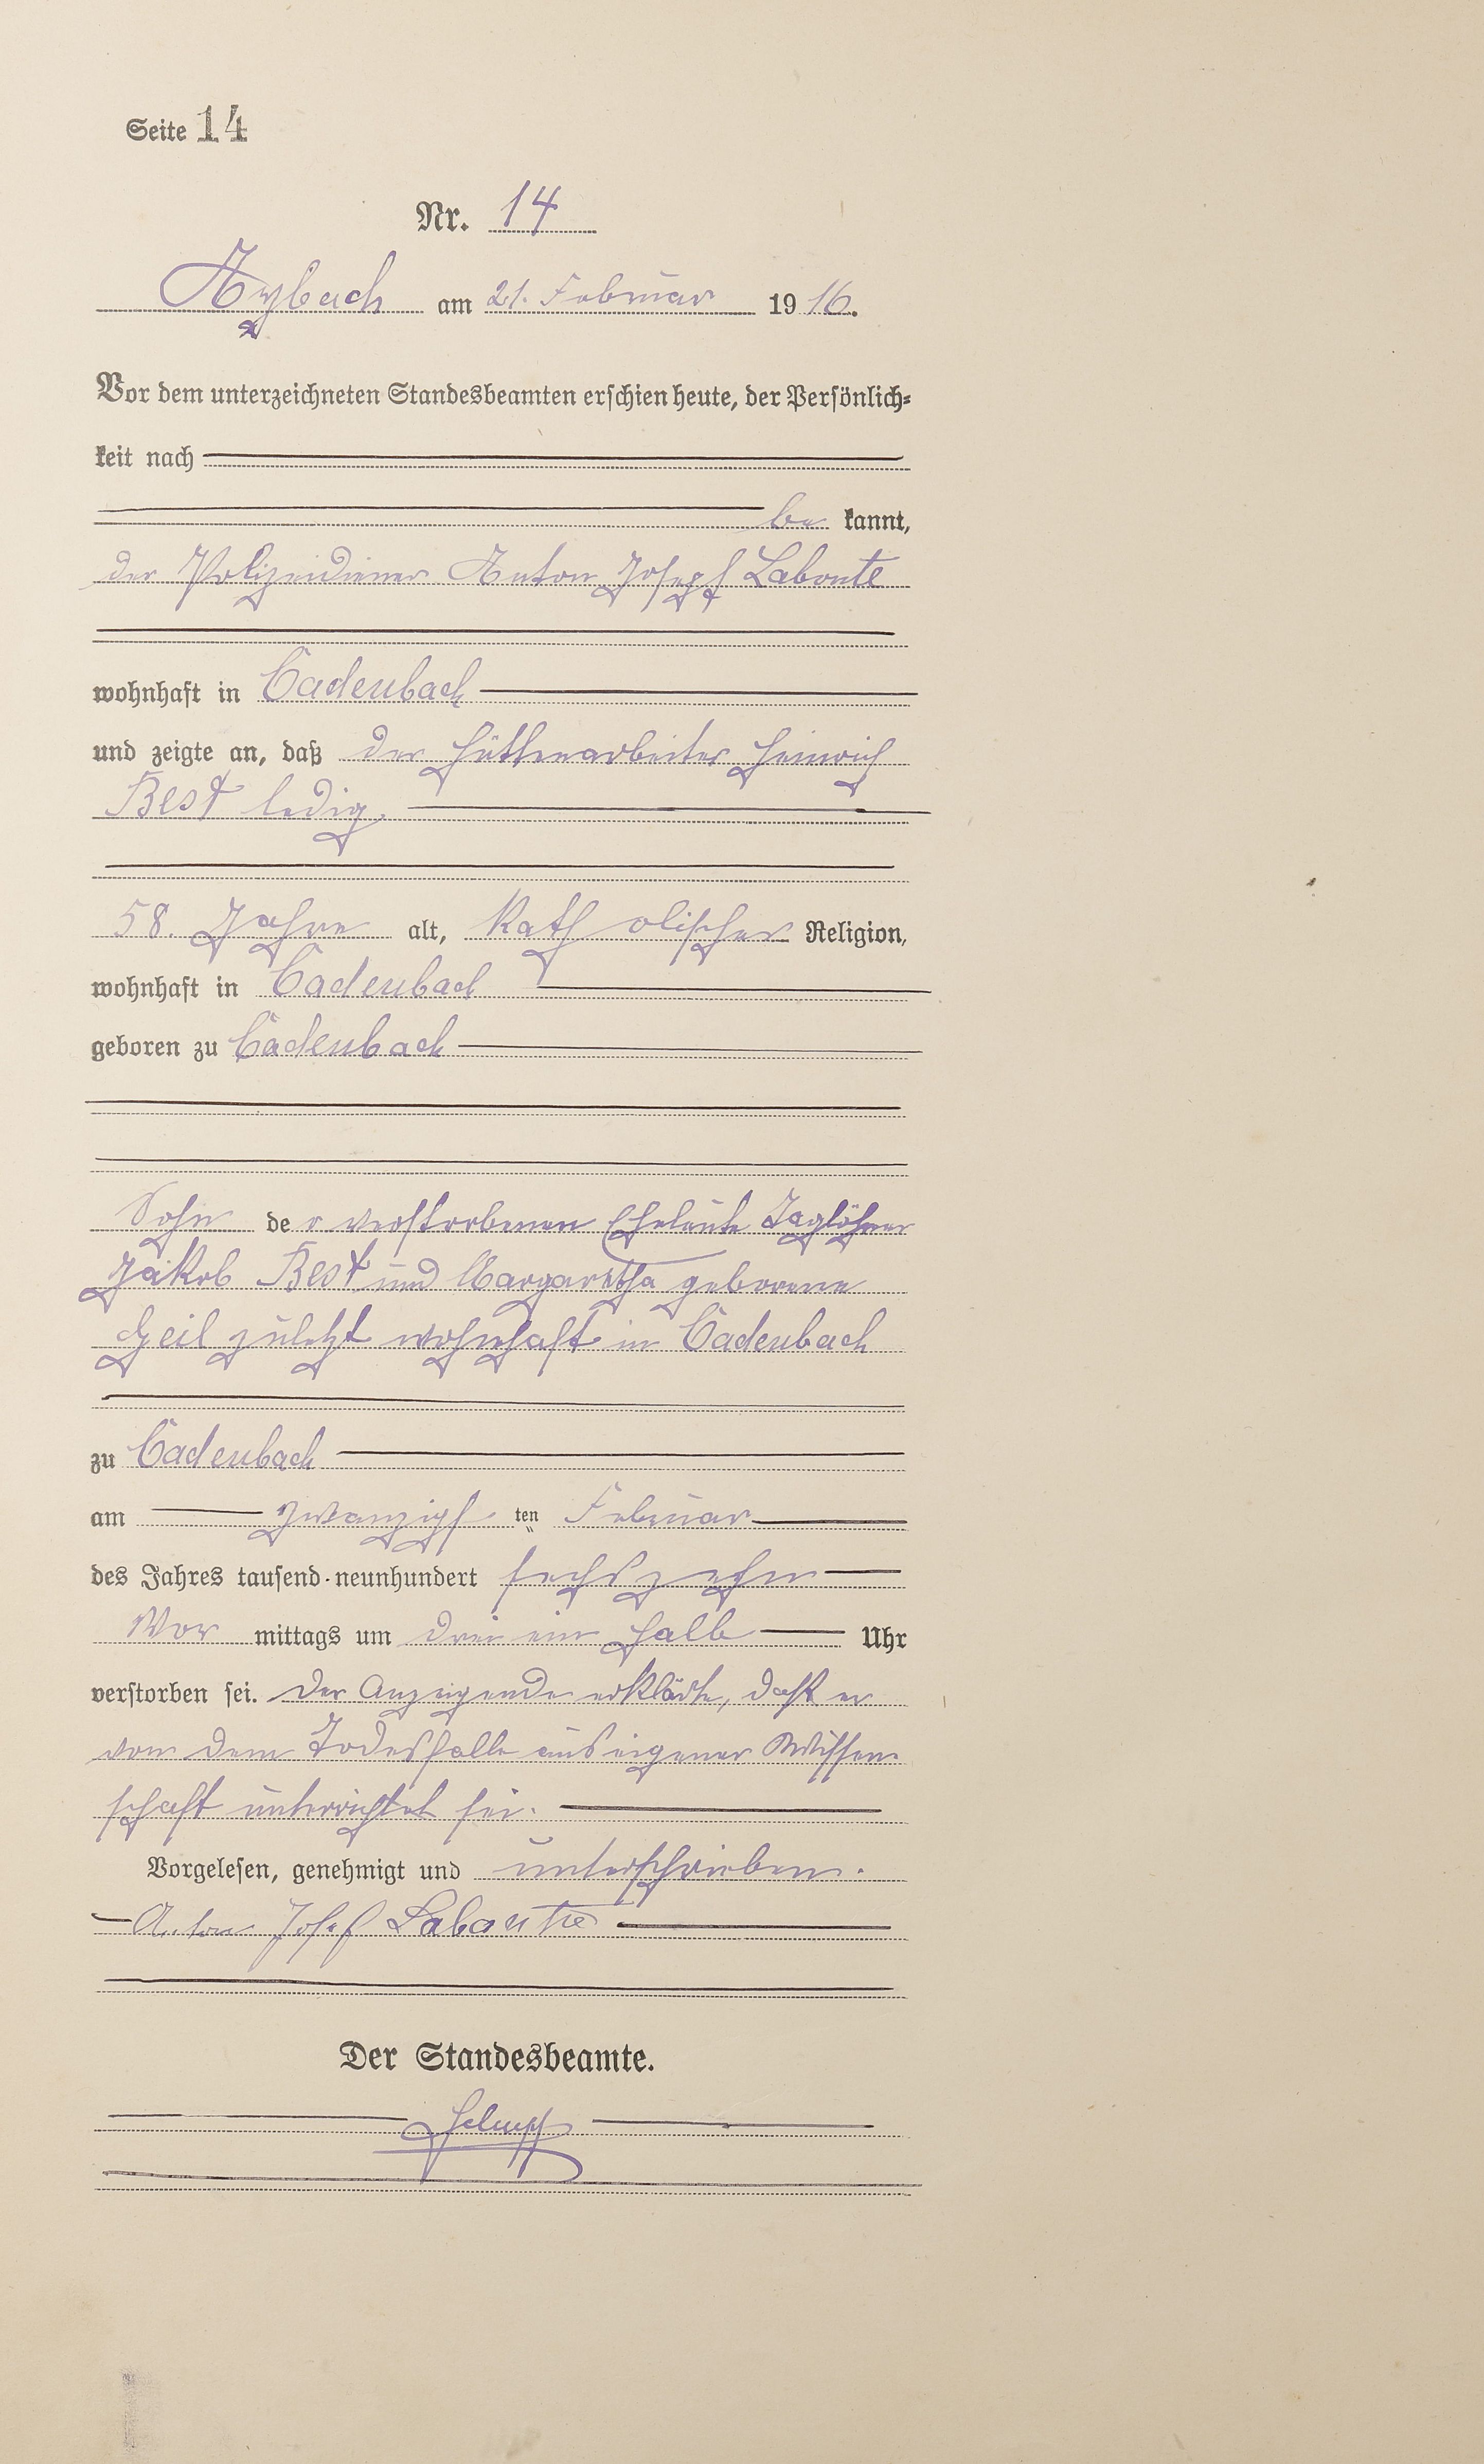 Seite 14
Nr. 14
Arzbach am 21. Februar 1916.
Vor dem unterzeichneten Standesbeamten erschien heute, der Persönlich-
keit nach
be kannt,
der Polizeidiener Anton Josef Labonte
wohnhaft in Cadenbach
und zeigte an, daß der Hüttenarbeiter Heinrich
Best ledig
58. Jahre alt, katholischer Religion,
wohnhaft in Cadenbach
geboren zu Cadenbach
Sohn der verstorbenen Eheleute Taglöhner
Jakob Best und Margaretha geborene
Geil zuletzt wohnhaft in Cadenbach
zu Cadenbach
am zwanzigsten Februar
des Jahres tausend-neunhundert sechszehn
Vor mittags um drei ein halb Uhr
verstorben sei. Der Anzeigende erklärte, daß er
von dem Todesfalle aus eigener Wissen
schaft unterrichtet sei.
Vorgelesen, genehmigt und unterschrieben.
Anton Josef Labonte
Der Standesbeamte.